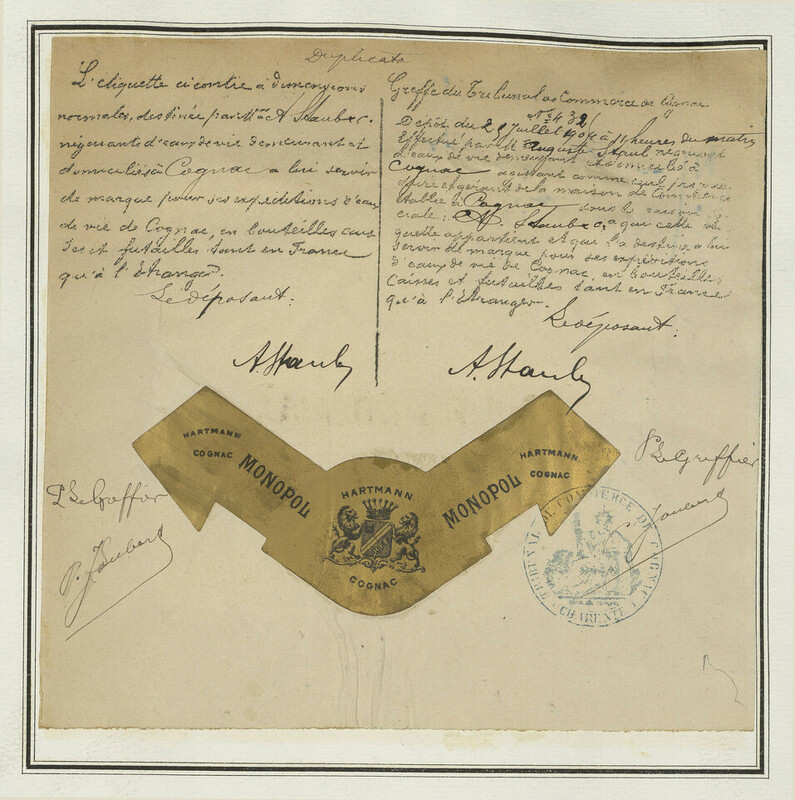 Duplicata
L'etiquette ci contre à dimensions
normales, destinée par Mrs A Staub & C.
négociants d'eaux de vie demeurant et
domiciliés à Cognac a lui servir
de marque pour ses expéditions d'eaux
de vie de Cognac, en bouteilles cais
ses et futailles tant en France
qu'à l'Etranger.
Le déposant:
A. Staub
Greffe du Tribunal de Commerce de Cognac
No 432
Dépôt du 2 juillet à 11 heures du matin
Effectué par M Auguste Staub négociant
d'eaux de vie demeurant et domicilié à
Cognac agissant comme seul
et gérant de la maison de Commerce
établie à Cognac sous la raison so
ciale: A. Staub & C, a qui cette éti
quette appartient et que l'a destinée a lui
servir de marque pour ses expéditions
d'eaux de vie de Cognac, en bouteilles
Caisses et futailles tant en France
qu'à l'Etranger.
Le déposant:
A. Staub
HARTMANN
COGNAC
MONOPOL
HARTMANN
COGNAC
MONOPOL
HARTMANN
COGNAC
P Le Greffier
P Le Greffier
TRIBUNAL DE COMMERCE DE COGNAC
CHARENTE